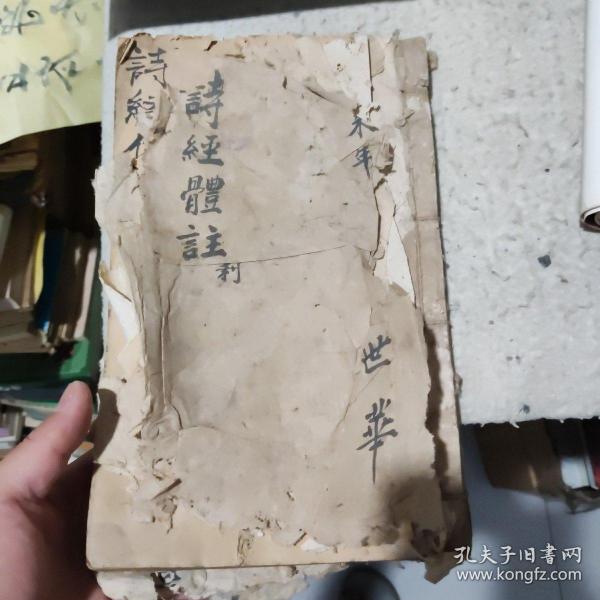 未年
世華
詩經體註
利
詩經
孔夫子旧书网
www.kongfz.com